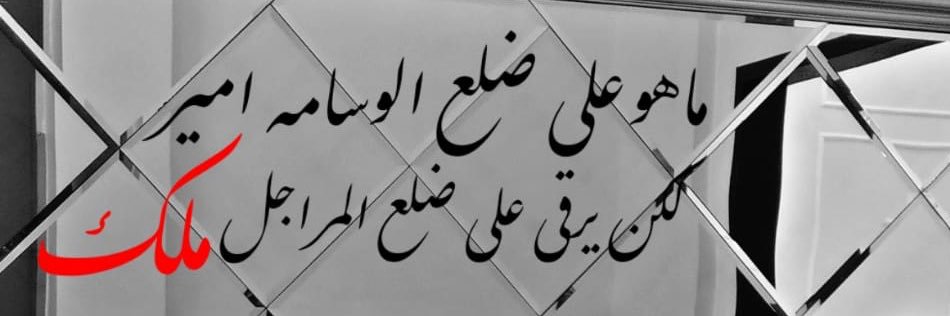 ماهو على ضلع الوسامه امير
لكن يرقى على ضلع المراجل ملك